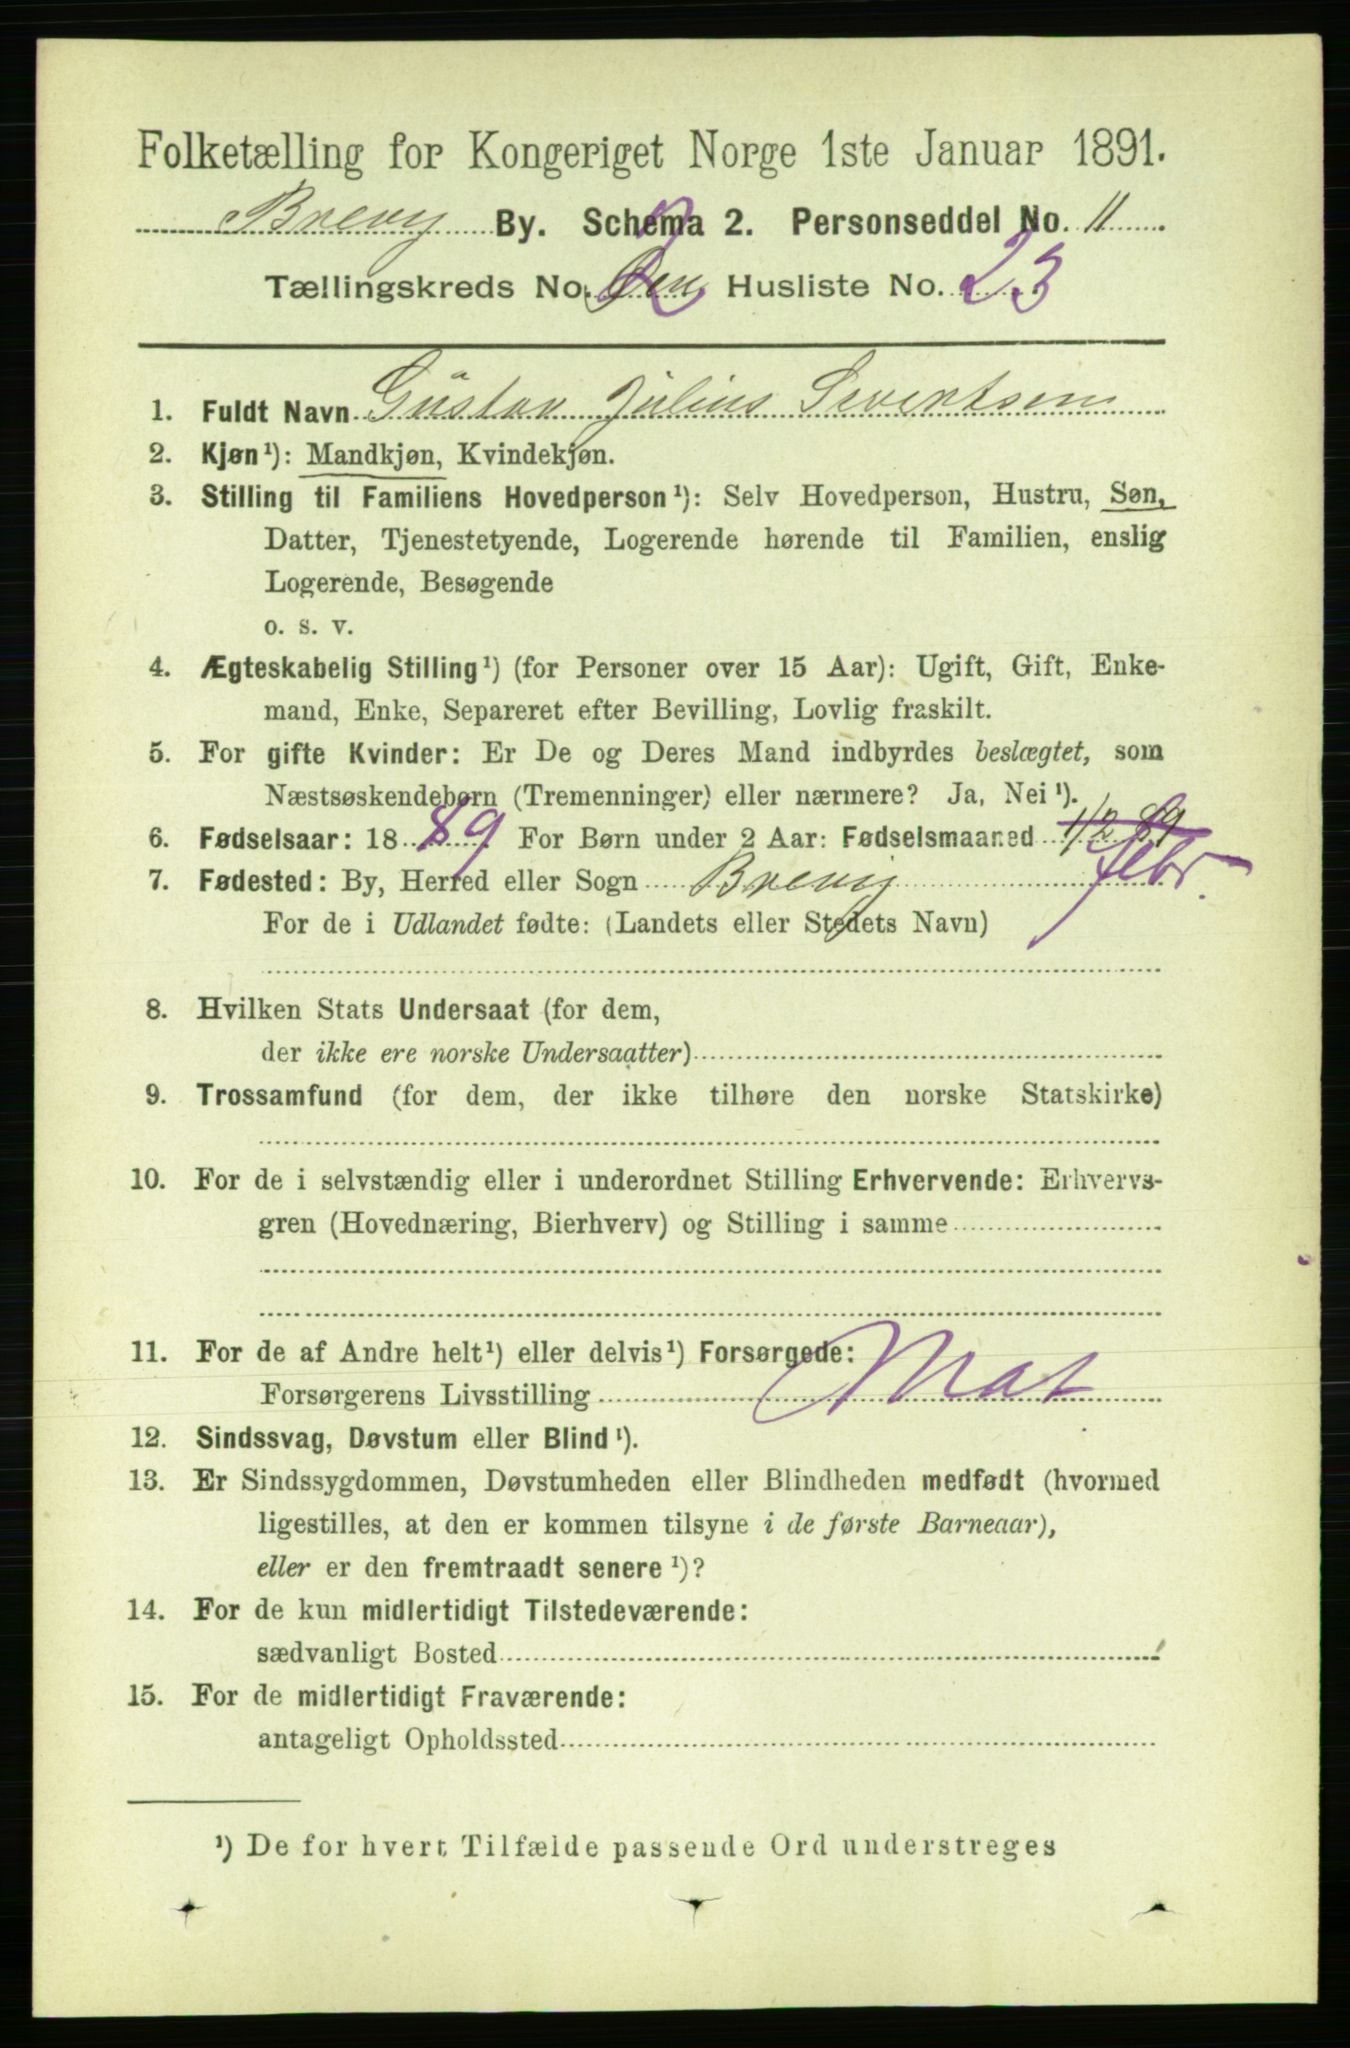 Folketælling for Kongeriget Norge 1ste Januar 1891.
Brevig By. Schema 2. Personseddel No. 11
Tællingskreds No. 2 Husliste No. 23
1. Fuldt Navn Gustav Julius Seventsen
2. Kjøn¹): Mandkjøn, Kvindekjøn.
3. Stilling til Familiens Hovedperson¹): Selv Hovedperson, Hustru, Søn,
Datter, Tjenestetyende, Logerende hørende til Familien, enslig
Logerende, Besøgende
o. s. v.
4. Ægteskabelig Stilling¹) (for Personer over 15 Aar): Ugift, Gift, Enke-
mand, Enke, Separeret efter Bevilling, Lovlig fraskilt.
5. For gifte Kvinder: Er De og Deres Mand indbyrdes beslægtet, som
Næstsøskendebørn (Tremenninger) eller nærmere? Ja, Nei¹).
6. Fødselsaar: 1889 For Børn under 2 Aar: Fødselsmaaned 1/2 89 febr.
7. Fødested: By, Herred eller Sogn Brevig
For de i Udlandet fødte: (Landets eller Stedets Navn)
8. Hvilken Stats Undersaat (for dem,
der ikke ere norske Undersaatter)
9. Trossamfund (for dem, der ikke tilhøre den norske Statskirke)
10. For de i selvstændig eller i underordnet Stilling Erhvervende: Erhvervs-
gren (Hovednæring, Bierhverv) og Stilling i samme
11. For de af Andre helt¹) eller delvis¹) Forsørgede:
Forsørgerens Livsstilling Mat
12. Sindssvag, Døvstum eller Blind¹).
13. Er Sindssygdommen, Døvstumheden eller Blindheden medfødt (hvormed
ligestilles, at den er kommen tilsyne i de første Barneaar),
eller er den fremtraadt senere¹)?
14. For de kun midlertidigt Tilstedeværende:
sædvanligt Bosted
15. For de midlertidigt Fraværende:
antageligt Opholdssted
¹) De for hvert Tilfælde passende Ord understreges